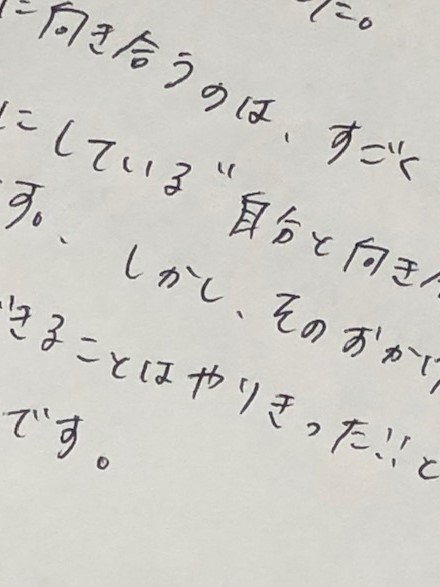 た。
に向き合うのは、すごく
にしている" 自分と向き
す。、しかし、そのおかげ
できることはやりきった!! と
です。